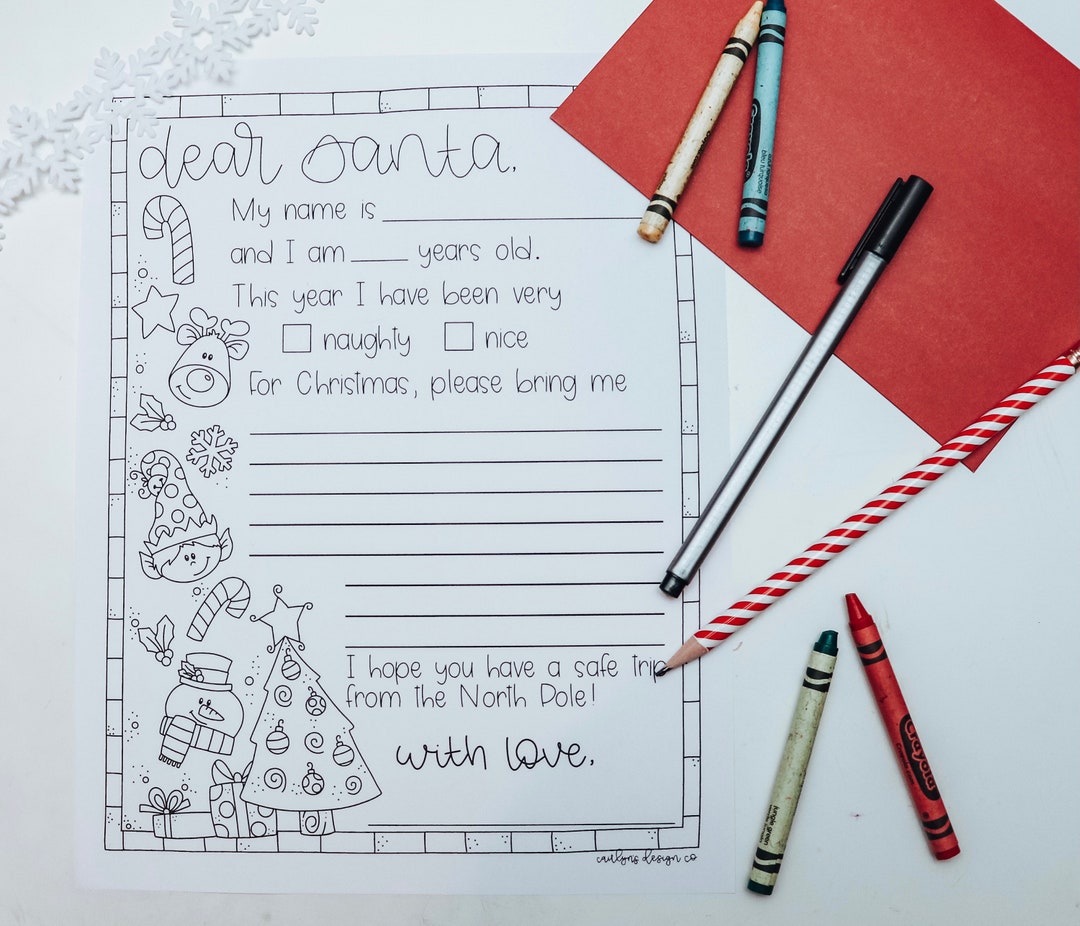 dear santa,
My name is
and I am
years old.
This year I have been very
naughty
nice
For Christmas, please bring me
I hope you have a safe trip
from the North Pole!
with love,
design co
Crayola
bleu turquoise
jungle green
Crayola